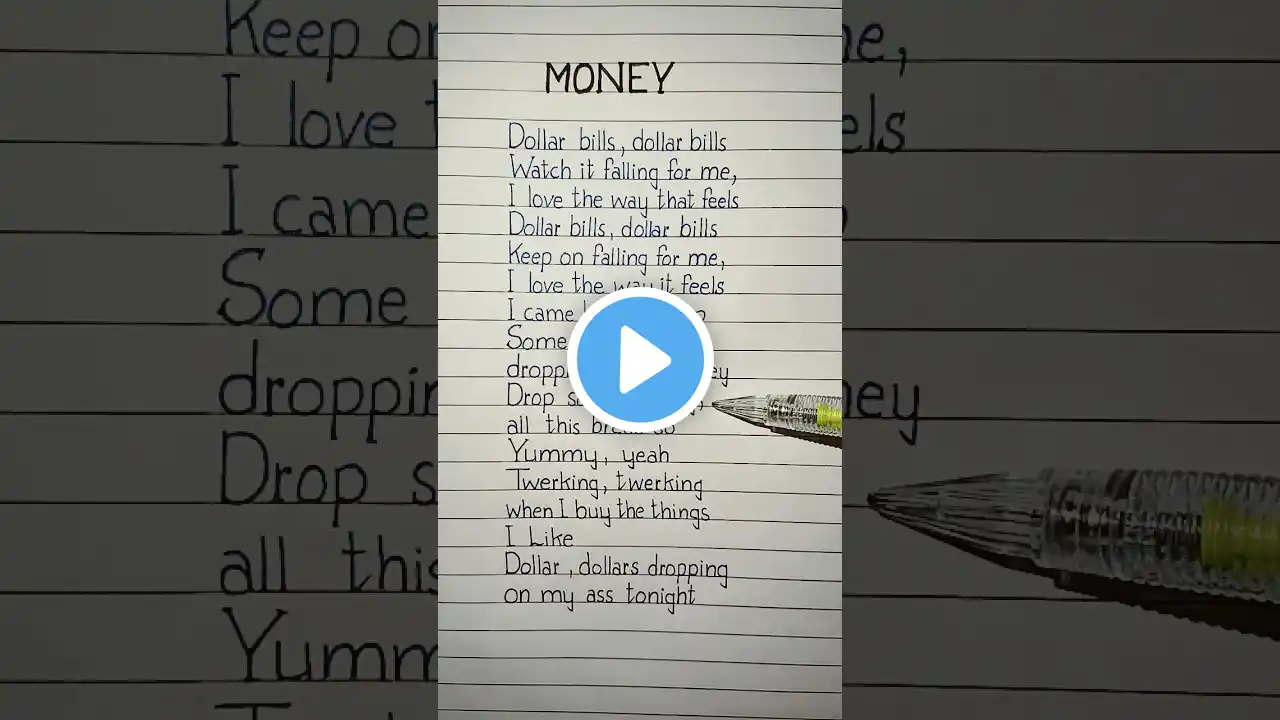 MONEY
Dollar bills, dollar bills
Watch it falling for me,
I love the way that feels
Dollar bills, dollar bills
Keep on falling for me,
I love the way it feels
I came
Some
Drop
all this
Yummy, yeah
Twerking, twerking
when I buy the things
I Like
Dollar, dollars dropping
on my ass tonight